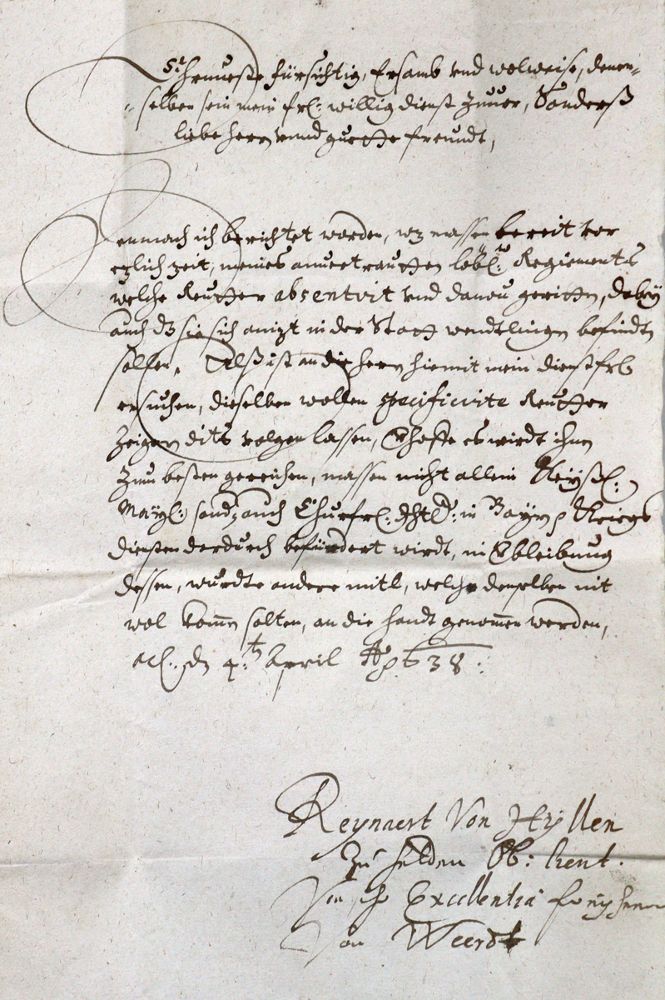 Ehrnueste fürsichtig, Ersamb vnd wolweise, denen-
selben sein mein frl: willig dienst Zuuor, Sonderß
liebe herrn vnnd guette freundt,
Demnach ich berichtet worden, wz massen bereit vor
etzlich zeit, meines anuertrautten löbl: Regiements
welche Reutter absentirt vnd dauon geritten, dabey
auch dz sie sich anizt in der Statt wendtlingen befinden
sollen, Alß ist an die herrn hiemit mein dienstfrl
ersuchen, dieselben wollen specificirte Reutter
Zeigern dits volgen lassen, Ich hoffe es wirdt ihnen
Zum besten gereichen, massen nicht allein Keyßl:
Mayl: sond: auch Churfrl: dhtl: in Bayrn Kriegs
diensten dardurch befürdert wirdt, in Verbleibung
dessen, wurdte andere mitl, welche denselben nit
wol kommen solten, an die handt genommen werden,
Act: dn 4:tn April Ao 638:
Reynaert Von Hÿllen
Zu helden Ob: Leut.
Excellentia
Von Weerdt